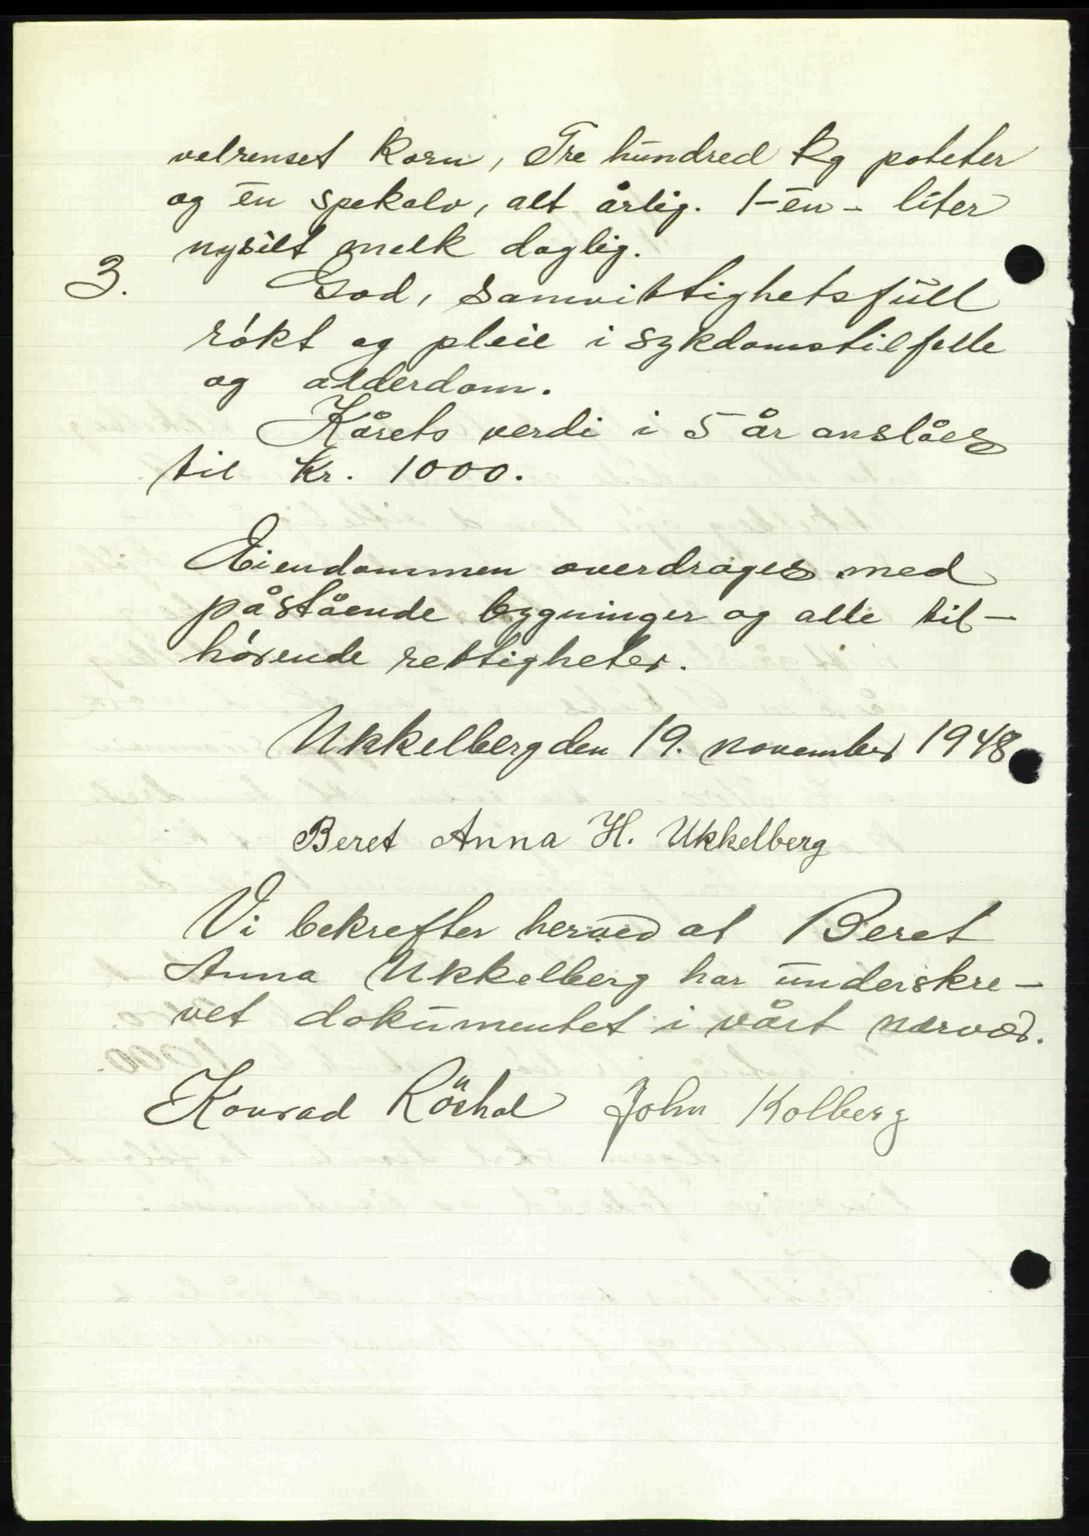 velrenset korn, Tre hundred kg poteter
og én spekalv, alt årlig. 1-én- liter
nysilt melk daglig.
3. God, samvittighetsfull
røkt og pleie i sykdomstilfelle
og alderdom.
Kårets verdi i 5 år anslåes
til kr. 1000.
Eiendommen overdrages med
påstående bygninger og alle til-
hørende rettigheter.
Ukkelberg den 19. november 1948
Beret Anna H. Ukkelberg
Vi bekrefter herved at Beret
Anna Ukkelberg har underskre-
vet dokumentet i vårt nærvær.
Konrad John Kolberg